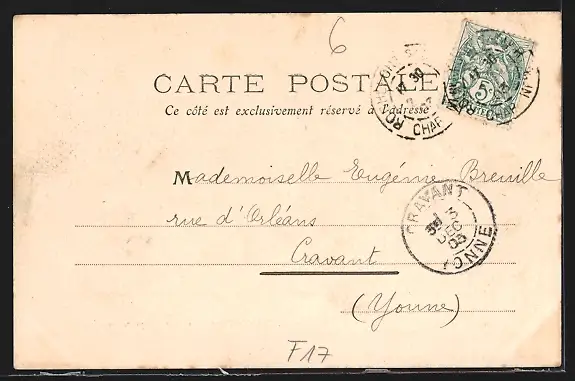 6
CARTE POSTALE
Ce côté est exclusivement réservé à l'adresse
5
CHAR
Mademoiselle Eugénie Breuille
rue d'Orléans
Cravant
(Yonne)
CRAVANT
YONNE
F17